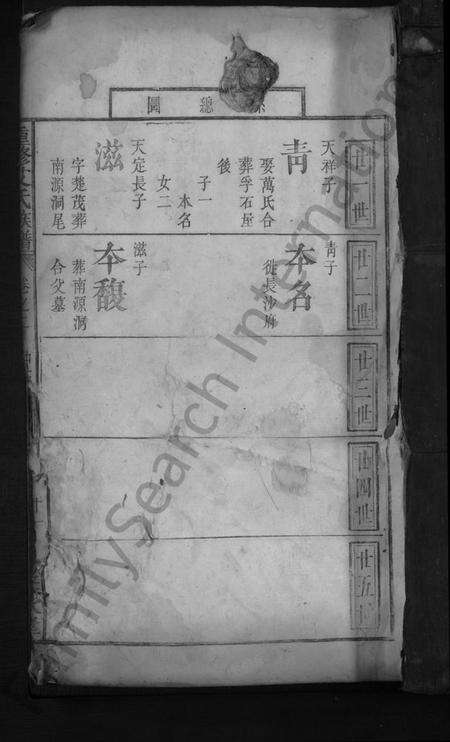 總圖
廿一世
天祥子
青
娶萬氏合
葬孚石屋
後
子一
本名
女二
天定長子
滋
字楚茂葬
南源洞尾
廿二世
青子
本名
徙長沙府
滋子
本馥
葬南源洞
合父墓
廿三世
廿四世
廿五
氏族譜
FamilySearch International